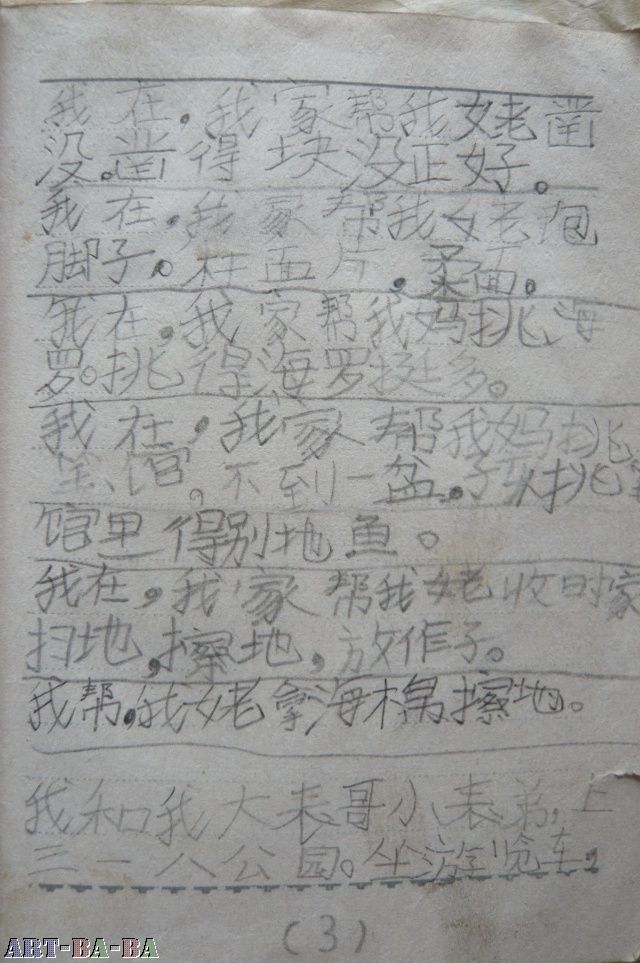 我在,我家帮我姥凿
没。凿得块没正好。
我在,我家帮我姥包
脚子。柱面片,柔面。
我在,我家帮我妈挑海
罗。挑得海罗挺多。
我在,我家帮我妈挑
馆,不到一盆。子以挑
馆里得别地鱼。
我在,我家帮我姥收时家
扫地,擦地,放作子。
我帮,我姥拿海棉擦地。
我和我大表哥小表弟,上
三一八公园。坐游览车。
(3)
ART-BA-BA